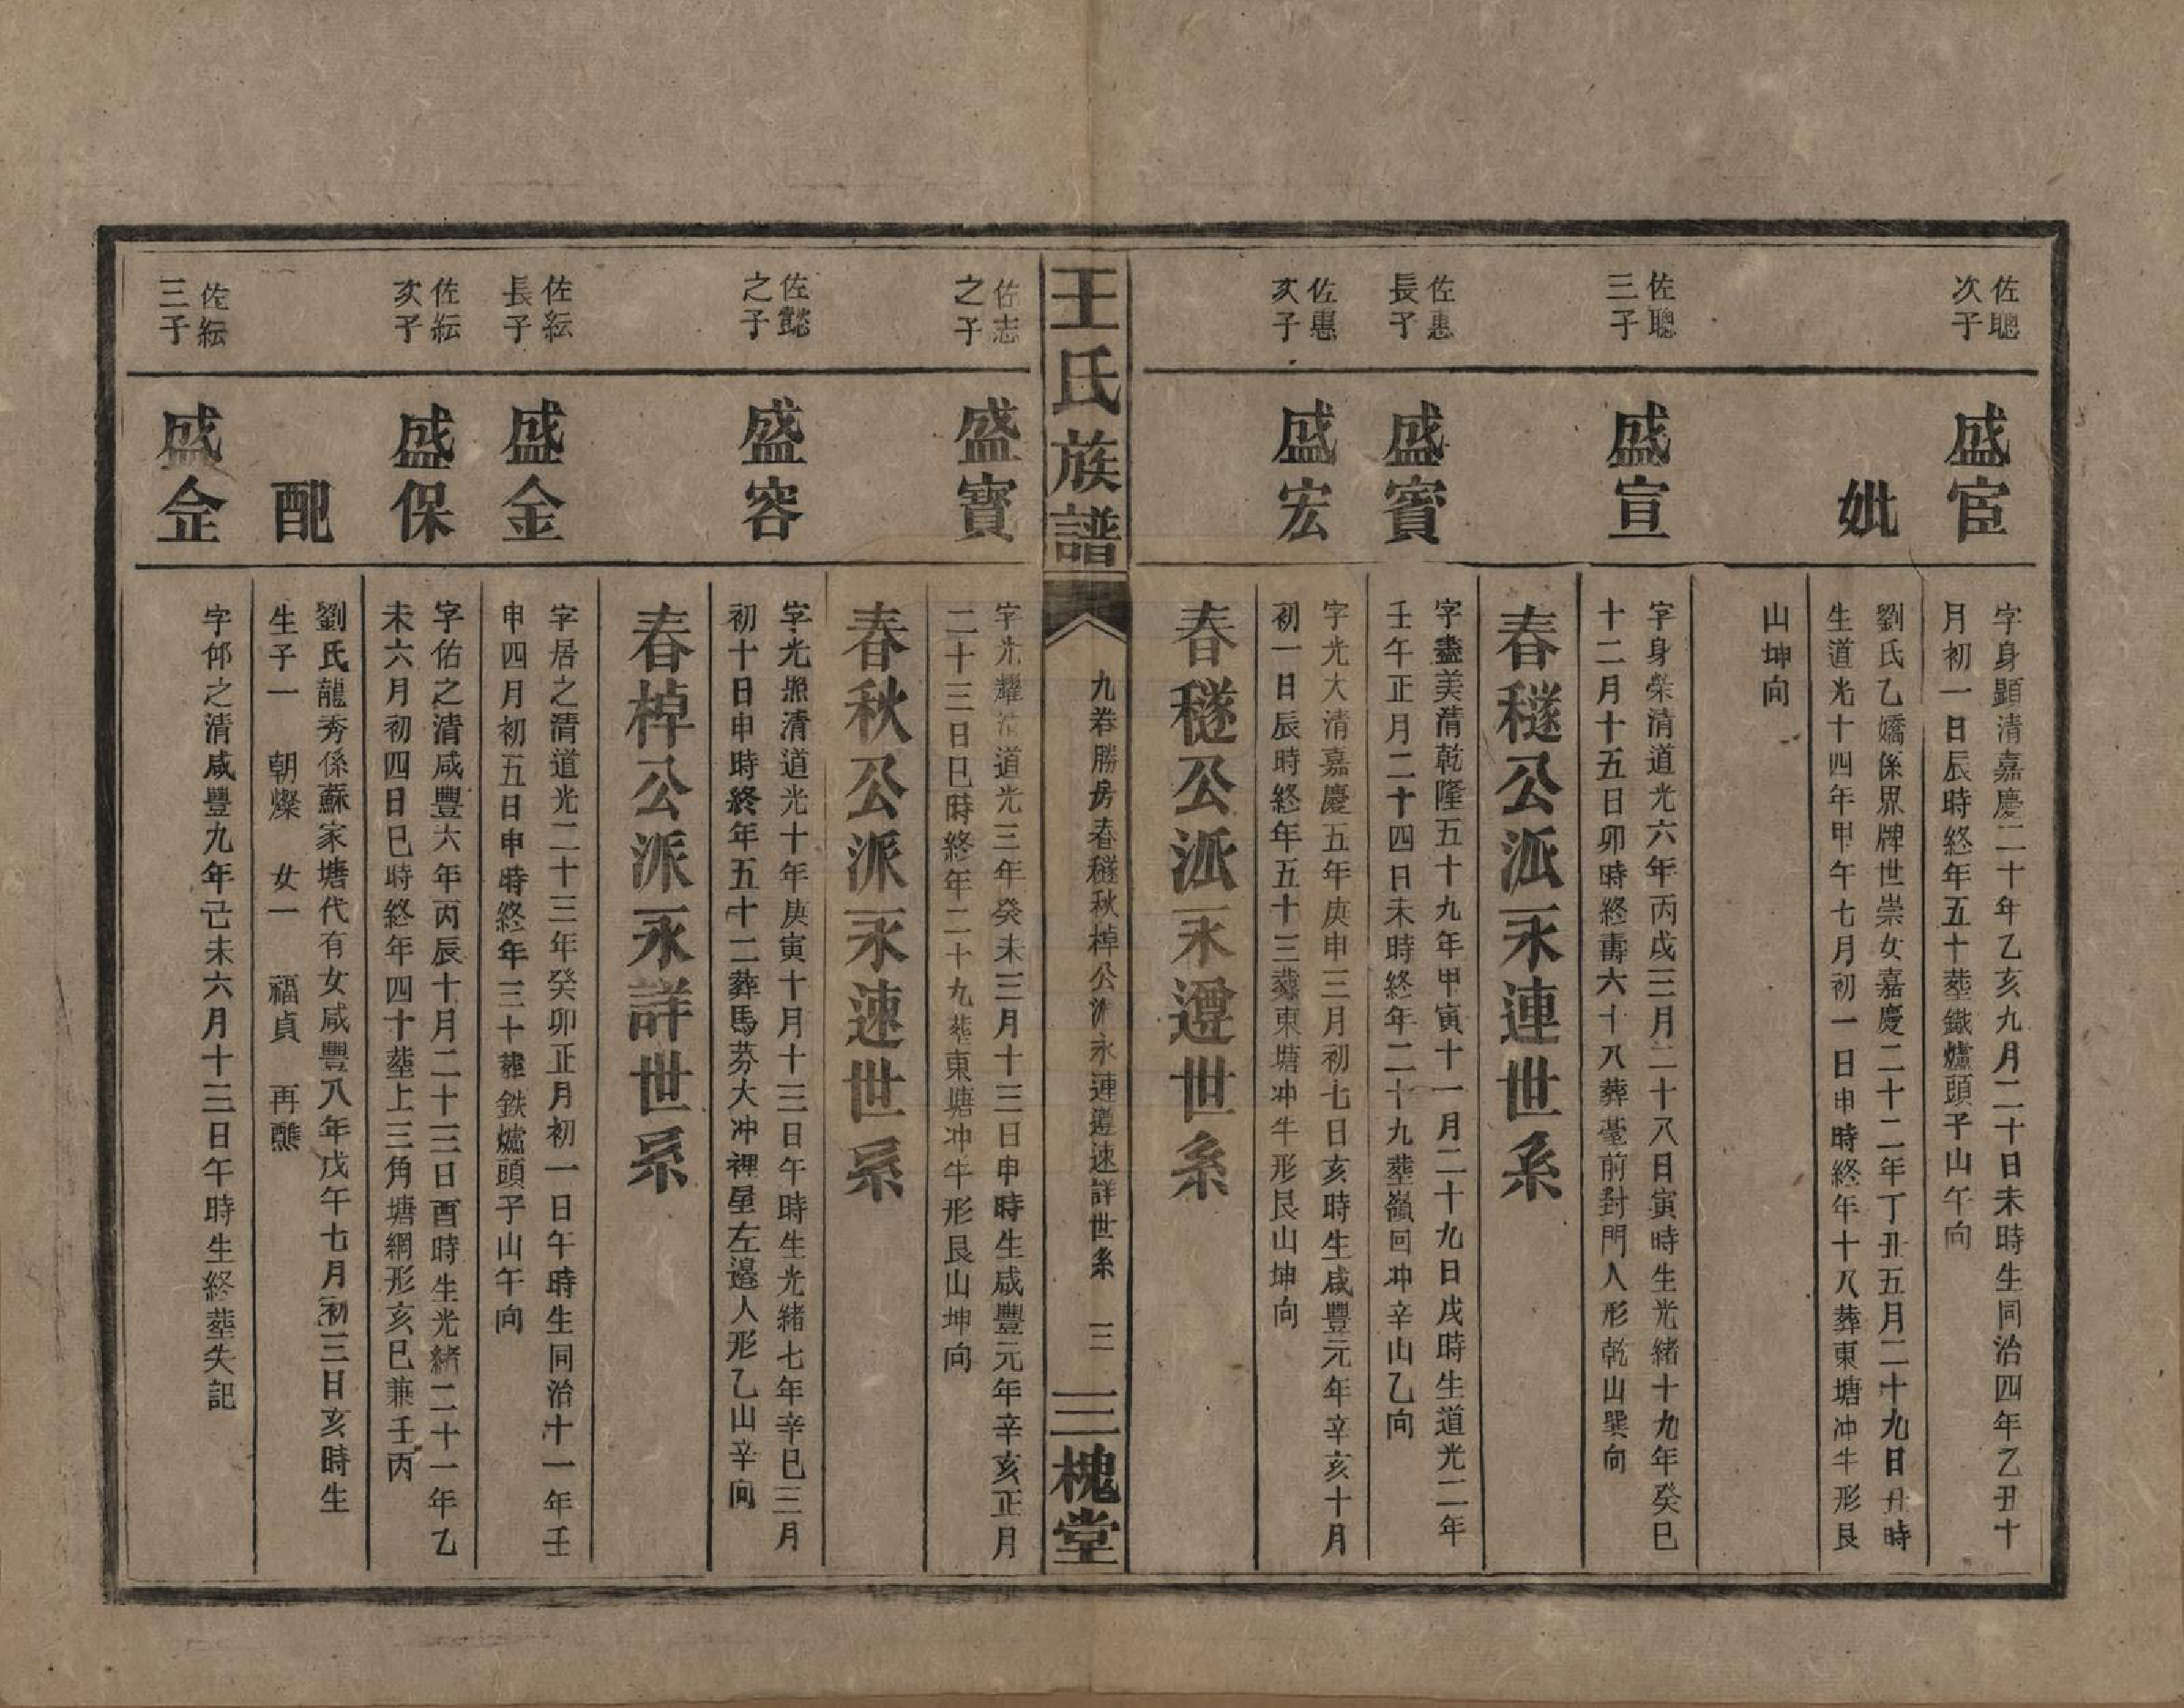 佐聰
次子
盛宦
字身顯清嘉慶二十年乙亥九月二十日未時生同治四年乙丑十
月初一日辰時終年五十塟鐵爐頭子山午向
妣
劉氏乙嬌係界牌世崇女嘉慶二十二年丁丑五月二十九日丑時
生道光十四年甲午七月初一日申時終年十八葬東塘冲牛形艮
山坤向
佐聰
三子
盛宣
字身榮清道光六年丙戌三月二十八日寅時生光緒十九年癸巳
十二月十五日卯時終壽六十八葬臺前對門人形乾山巽向
春穟公派永連世系
佐惠
長子
盛賓
字盡美清乾隆五十九年甲寅十一月二十九日戌時生道光二年
壬午正月二十四日未時終年二十九塟嶺回冲辛山乙向
佐惠
次子
盛宏
字光大清嘉慶五年庚申三月初七日亥時生咸豐元年辛亥十月
初一日辰時終年五十三葬東塘冲牛形艮山坤向
春穟公派永遵世系
王氏族譜
九卷勝房春穟秋棹公派永連遵速詳世系
三
三槐堂
佐志
之子
盛寶
字光耀清道光三年癸未三月十三日申時生咸豐元年辛亥正月
二十三日巳時終年二十九塟東塘冲牛形艮山坤向
春秋公派永速世系
佐懿
之子
盛容
字光照清道光十年庚寅十月十三日午時生光緒七年辛巳三月
初十日申時終年五十二葬馬芬大冲裡星左邉人形乙山辛向
春棹公派永詳世系
佐紜
長子
盛金
字居之清道光二十三年癸卯正月初一日午時生同治十一年壬
申四月初五日申時終年三十葬鉄爐頭子山午向
佐紜
次子
盛保
字佑之清咸豐六年丙辰十月二十三日酉時生光緒二十一年乙
未六月初四日巳時終年四十塟上三角塘網形亥巳兼壬丙
配
劉氏龍秀係蘇家塘代有女咸豐八年戊午七月初三日亥時生
生子一 朝燦 女一 福貞 再醮
佐紜
三子
盛企
字仰之清咸豐九年己未六月十三日午時生終塟失記